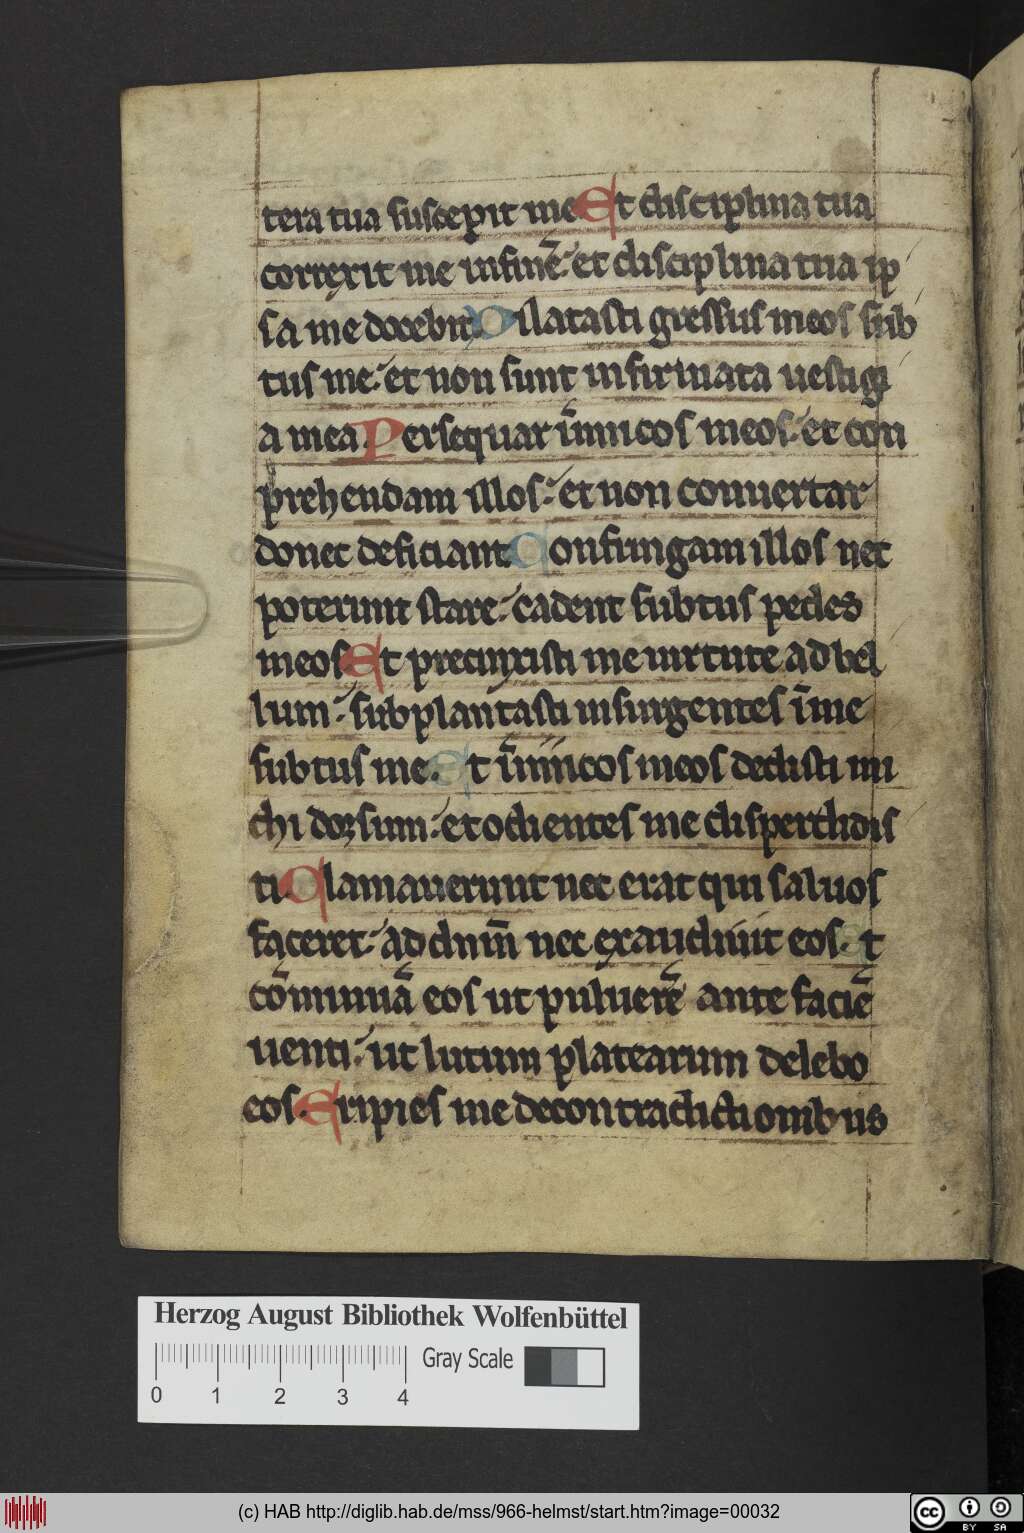 tera tua suscepit me Et disciplina tua
correxit me in finē. et disciplina tua ip
sa me docebit. Dilatasti gressus meos sub
tus me. et non sunt infirmata uestigi
a mea. Persequar inīmicos meos. et con
prehendam illos. et non conuertar
donec deficiant. Confringam illos nec
poterunt stare. cadent subtus pedes
meos. Et precinxisti me uirtute ad bel
lum. subplantasti insurgentes ī me
subtus me. Et inīmicos meos dedisti mi
chi dorsum. et odientes me disperdidis
ti. Clamauerunt nec erat qui saluos
faceret. ad dn̄m nec exaudiuit eos. Et
cōminuā eos ut puluerē ante faciē
uenti. ut lutum platearum delebo
eos. Eripies me de contradictionibus
Herzog August Bibliothek Wolfenbüttel
Gray Scale
0 1 2 3 4
(c) HAB http://diglib.hab.de/mss/966-helmst/start.htm?image=00032
cc BY SA